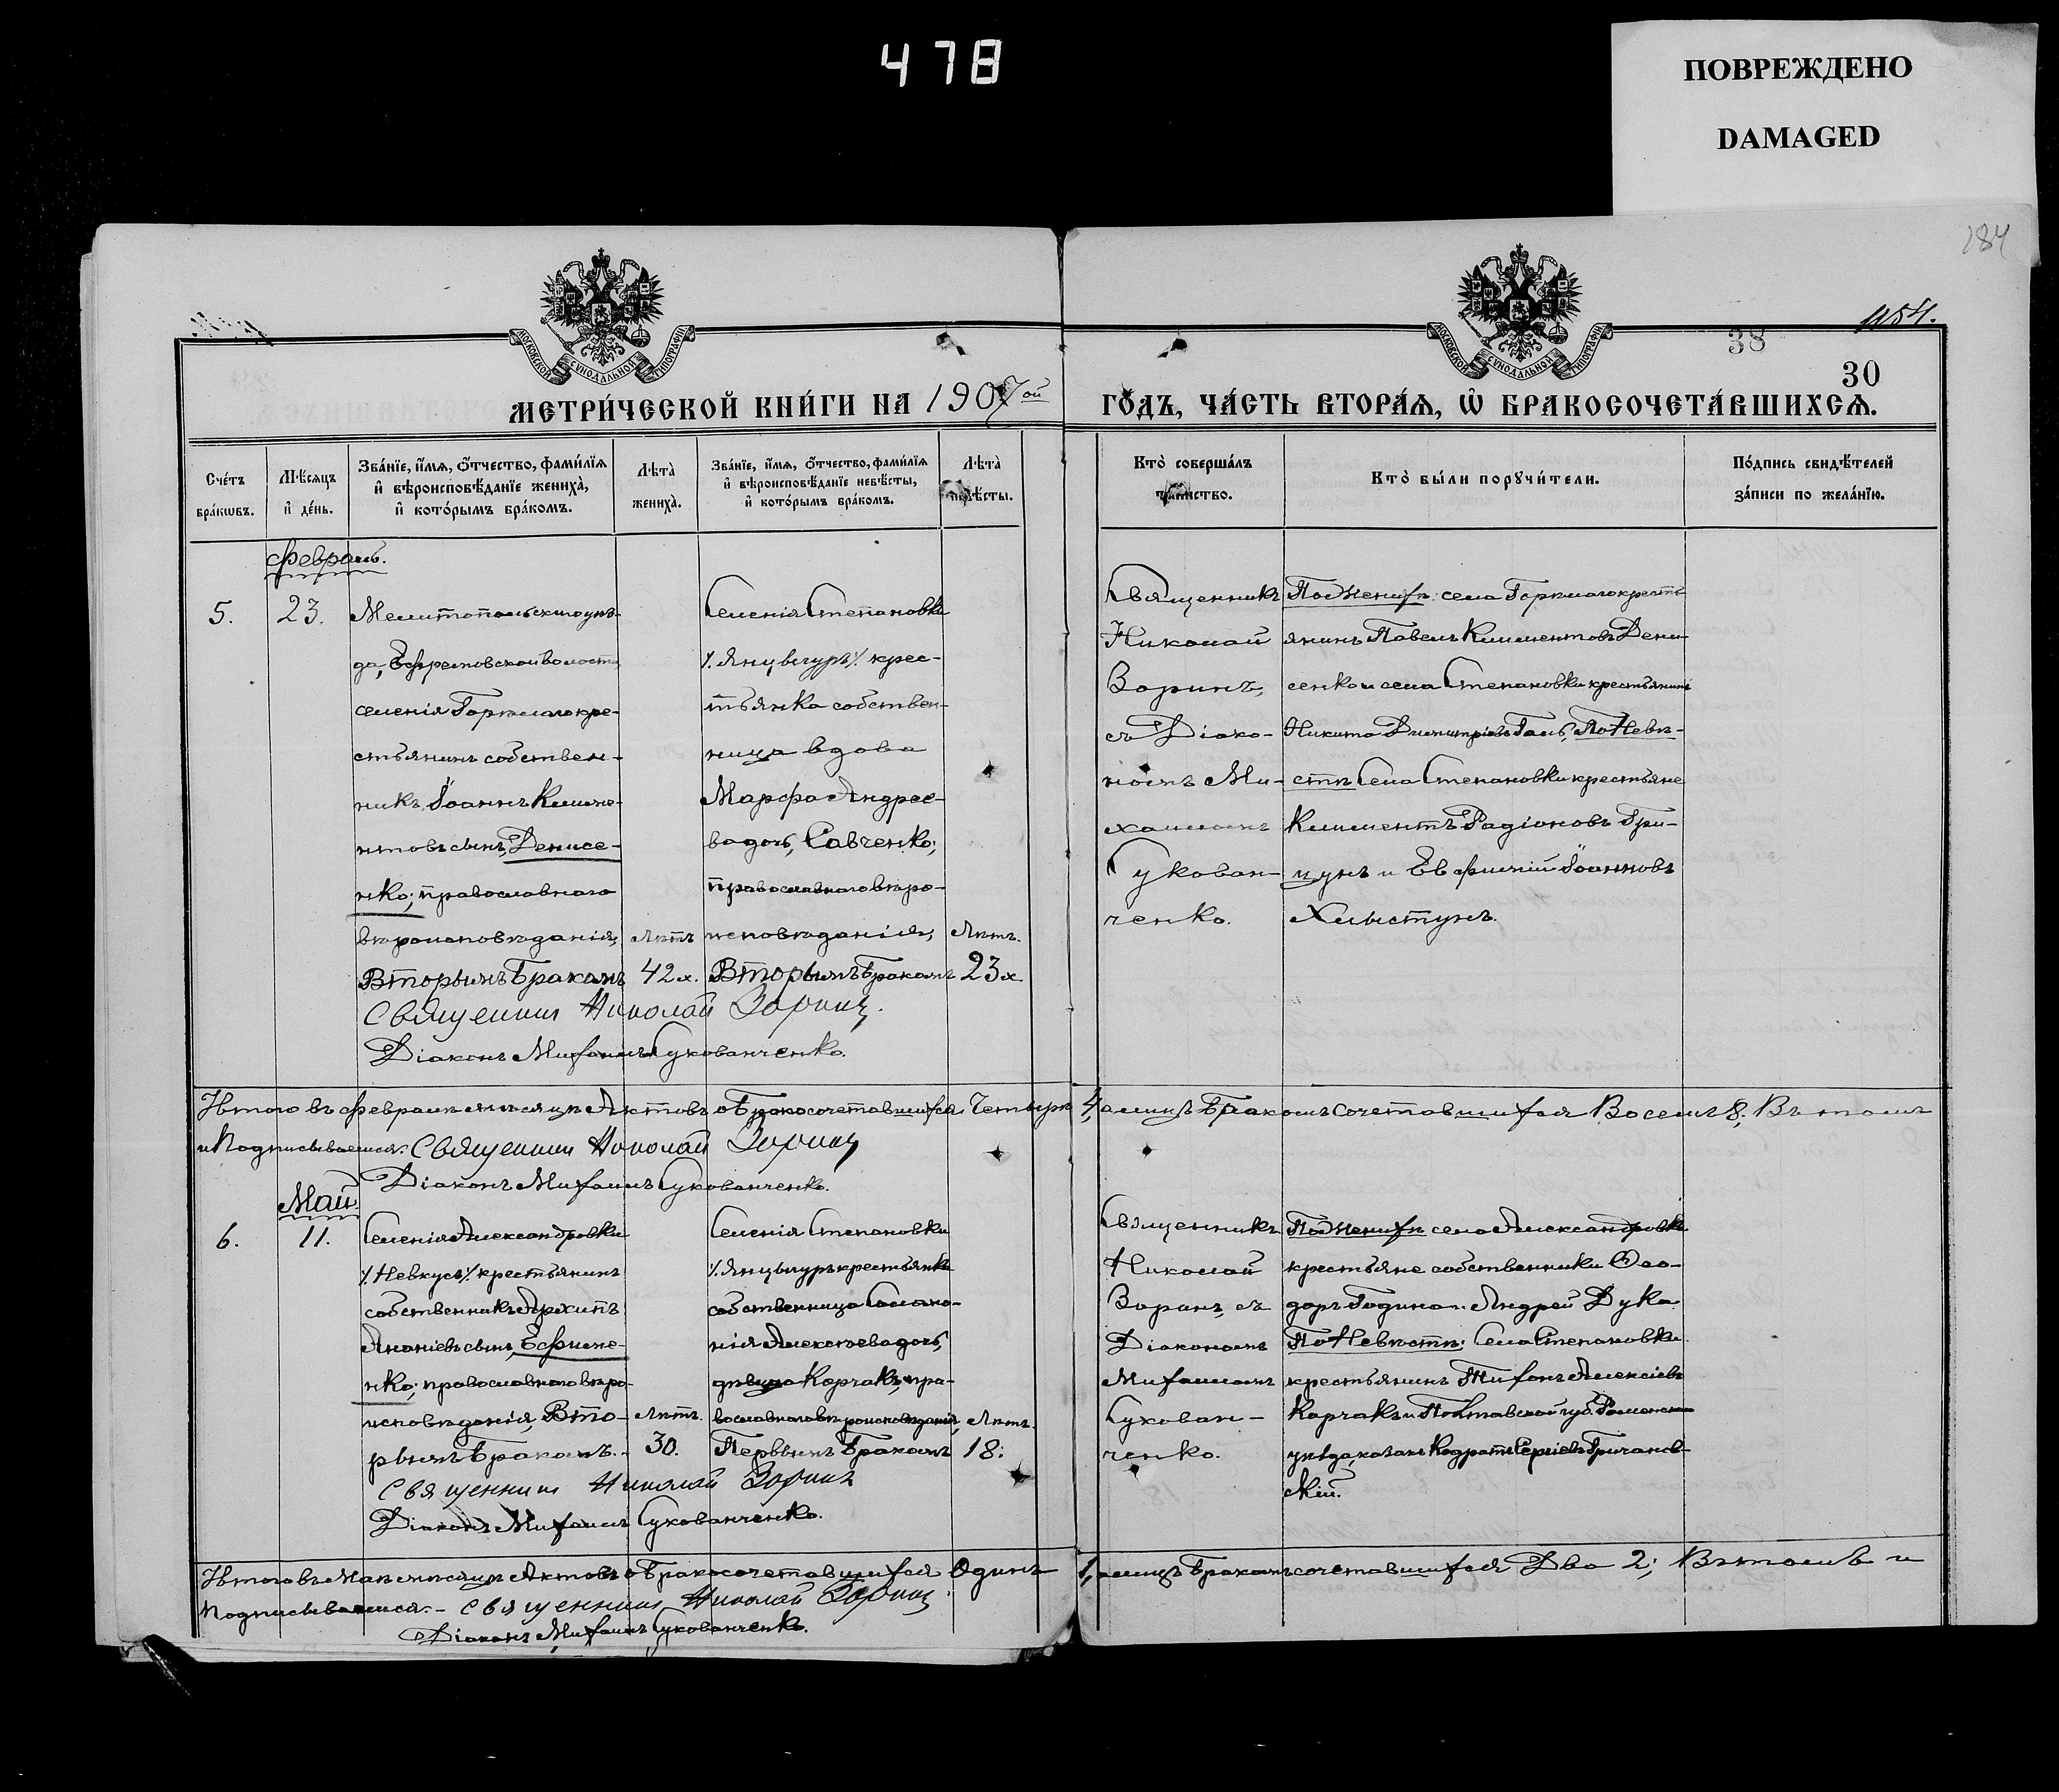 478
ПОВРЕЖДЕНО
DAMAGED
184
1154.
38
30
МОСКОВСКОЙ СѴНОДАЛЬНОЙ ТИПОГРАФІИ
МОСКОВСКОЙ СѴНОДАЛЬНОЙ ТИПОГРАФІИ
МЕТРИ́ЧЕСКОЙ КНИ́ГИ НА 1907ой ГО́ДЪ, ЧА́СТЬ ВТОРА́Я, Ѡ БРАКОСОЧЕТА́ВШИХСЯ.
Сче́тъ бра́кωвъ.
Мѣ́сяцъ и҆ де́нь.
Зва́нїе, и҆́мя, ѻ҆́тчество, фами́лїя и҆ вѣроисповѣ́данїе жениха̀, и҆ кото́рымъ бра́комъ.
Лѣта̀ жениха̀.
Зва́нїе, и҆́мя, ѻ҆́тчество, фами́лїя и҆ вѣроисповѣ́данїе невѣ́сты, и҆ кото́рымъ бра́комъ.
Лѣта̀ невѣ́сты.
Кто̀ соверша́лъ таинство.
Кто̀ бы́ли порꙋчи́тели.
По́дпись свидѣ́телей за́писи по жела́нїю.
Февраль.
5.
23.
Мелитопольскаго уѣз-
да, Ефремовской волости
селенія Горѣлаго кре-
стьянинъ собствен-
никъ Іоаннъ Климе-
нтовъ сынъ, Денисе-
нко; православнаго
вѣроисповѣданія,
Вторымъ бракомъ
Лѣтъ
42х.
Селенія Степановки
/. Янцыгуръ ./ крес-
тьянка собствен-
ница вдова
Марфа Андрее-
ва дочь, Савченко;
православнаго вѣро-
исповѣданія,
Вторымъ бракомъ
Лѣтъ.
23х
Священникъ
Николай
Зоринъ,
съ Діако-
номъ Ми-
хаиломъ
Сукован-
ченко.
По Женихѣ: села Горѣлаго кресть-
янинъ Павелъ Климентовъ Дени-
сенко и села Степановки крестьянинъ
Никита Димитріевъ Галь, По Невѣ-
стѣ Села Степановки крестьяне
Климентъ Радіоновъ Гри-
цунъ и Евфимій Іоанновъ
Хлыстунъ.
Священникъ Николай Зоринъ.
Діаконъ Михаилъ Сукованченко.
Итого въ февралѣ мѣсяцѣ Актовъ о бракосочетавшихся Четыре 4, а лицъ бракомъ сочетавшихся Восемь 8; Въ томъ
и Подписываемся: Священникъ Николай Зоринъ
Діаконъ Михаилъ Сукованченко.
Май.
6.
11.
Селенія Александровки
/. Невкусъ ./ крестьянинъ
собственникъ Архипъ
Ананіевъ сынъ, Ефиме-
нко; православнаго вѣро-
исповѣданія, Вто-
рымъ бракомъ.
Лѣтъ.
30.
Селенія Степановки
/. Янцыгуръ крестьянка
собственница Солмо-
нія Алексѣева дочь,
дѣвица Корчакъ, пра-
вославнаго вѣроисповѣданія,
Первымъ бракомъ
Лѣтъ
18:
Священникъ
Николай
Зоринъ, съ
Діакономъ
Михаиломъ
Сукован-
ченко.
По Женихѣ села Александровки
крестьяне собственники Ѳео-
доръ Година и Андрей Дука
По Невѣстѣ: Села Степановки
крестьянинъ Тихонъ Алексіевъ
Корчакъ и Полтавской губ. Роменскаго
уѣзда, казакъ Кодратъ Сергіевъ Гричанов-
скій.
Священникъ Николай Зоринъ
Діаконъ Михаилъ Сукованченко.
Итого въ Маѣ мѣсяцѣ Актовъ о бракосочетавшихся Одинъ 1, а лицъ бракомъ сочетавшихся Два 2; Въ томъ и
Подписываемся. – Священникъ Николай Зоринъ
Діаконъ Михаилъ Сукованченко.